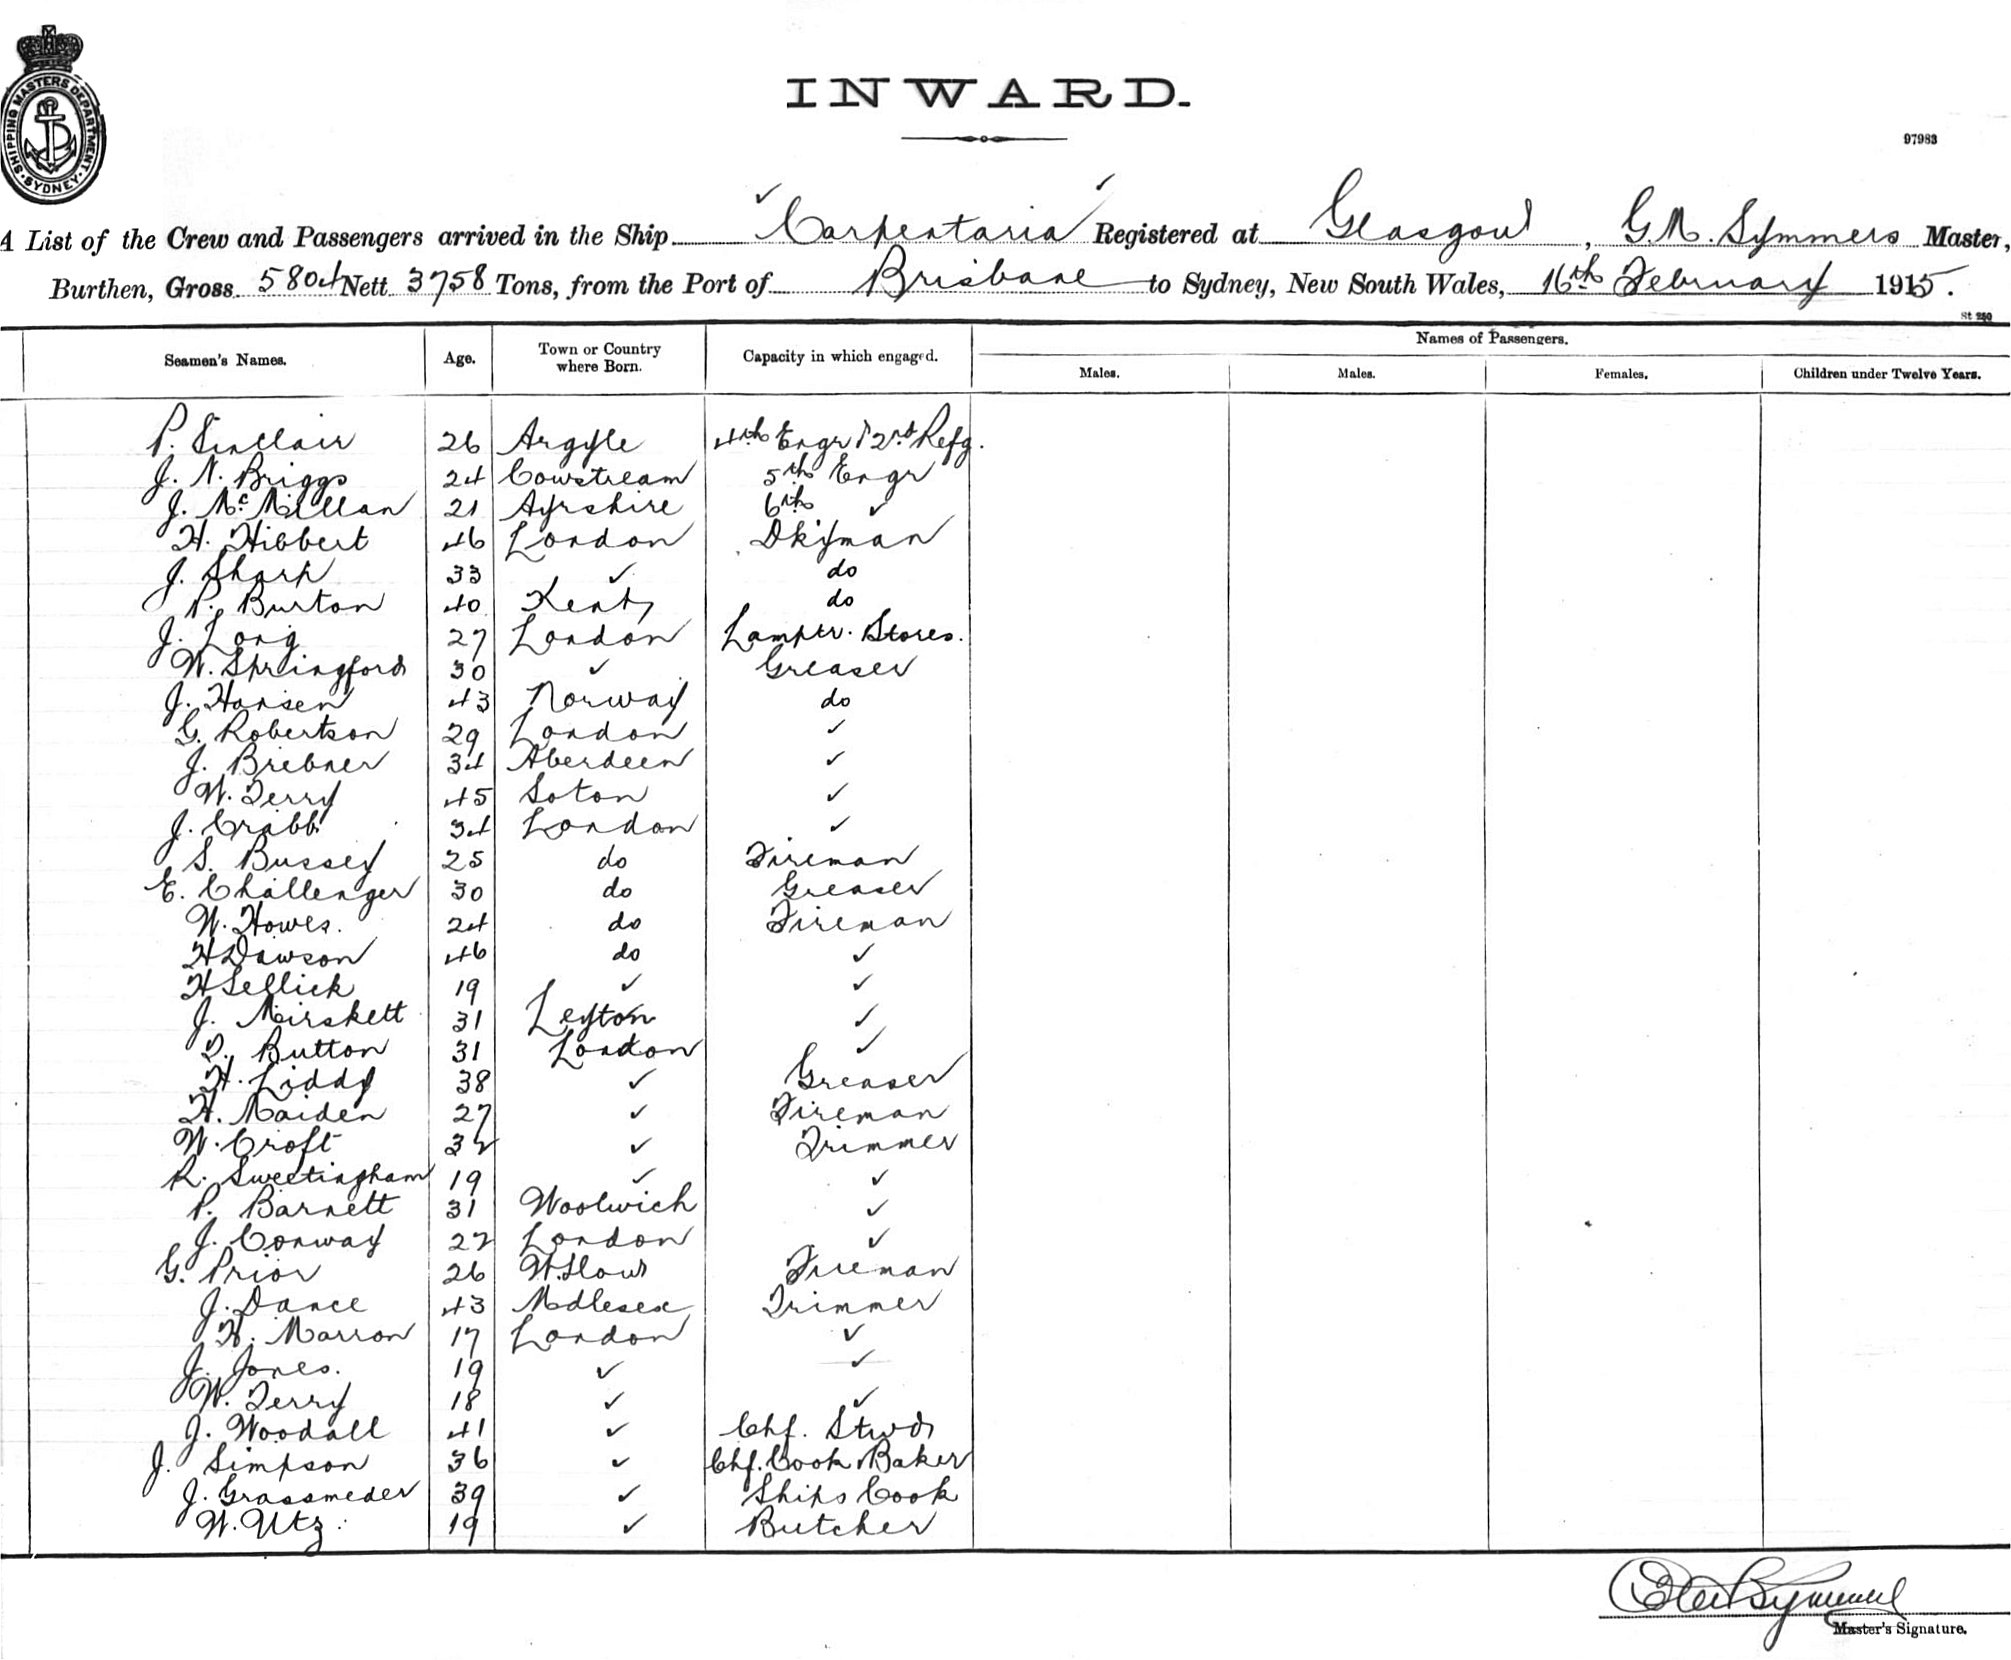 SHIPPING MASTERS DEPARTMENT. SYDNEY.
INWARD.
97983
A List of the Crew and Passengers arrived in the Ship Carpentaria Registered at Glasgow, G.M. Symmers Master,
Burthen, Gross 5804 Nett 3758 Tons, from the Port of Brisbane to Sydney, New South Wales, 16th February 1915.
St 250
Names of Passengers.
Seamen's Names. Age. Town or Country where Born. Capacity in which engaged. Males. Males. Females. Children under Twelve Years.
P. Sinclair 26 Argyle 4th Engr & 2nd Refg.
J. N. Briggs 24 Cowstream 5th Engr
J. McMillan 21 Ayrshire 6th ✓
H. Hibbert 46 London Dkyman
J. Sharp 33 ✓ do
P. Burton 40 Kent do
J. Long 27 London Lamptr. Stores.
W. Springford 30 ✓ Greaser
J. Hansen 43 Norway do
G. Robertson 29 London ✓
J. Brebner 34 Aberdeen ✓
W. Terry 45 Soton ✓
J. Crabb 34 London ✓
S. Bussey 25 do Fireman
E. Challenger 30 do Greaser
W. Howes. 24 do Fireman
H Dawson 46 do ✓
H Sellick 19 ✓ ✓
J. Mirskett 31 Leyton ✓
Button 31 London ✓
H. Liddy 38 ✓ Greaser
H. Maiden 27 ✓ Fireman
W. Croft 32 ✓ Trimmer
R. Sweetingham 19 ✓ ✓
P. Barnett 31 Woolwich ✓
J. Conway 22 London ✓
G. Prior 26 Fireman
J. Dance 43 Mdlesex Trimmer
H. Marron 17 London ✓
J. Jones. 19 ✓ ✓
W. Terry 18 ✓ ✓
J. Woodall 41 ✓ Chf. Stwd
J. Simpson 36 ✓ Chf. Cook & Baker
J. Grassmeder 39 ✓ Ships Cook
W. Utz 19 ✓ Butcher
Master's Signature.